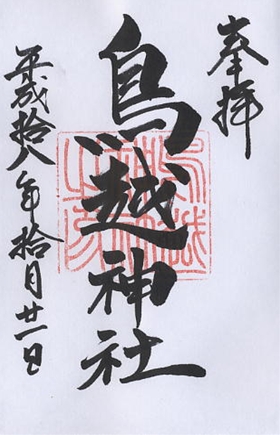 奉拝
鳥越神社
平成拾八年拾月廿一日